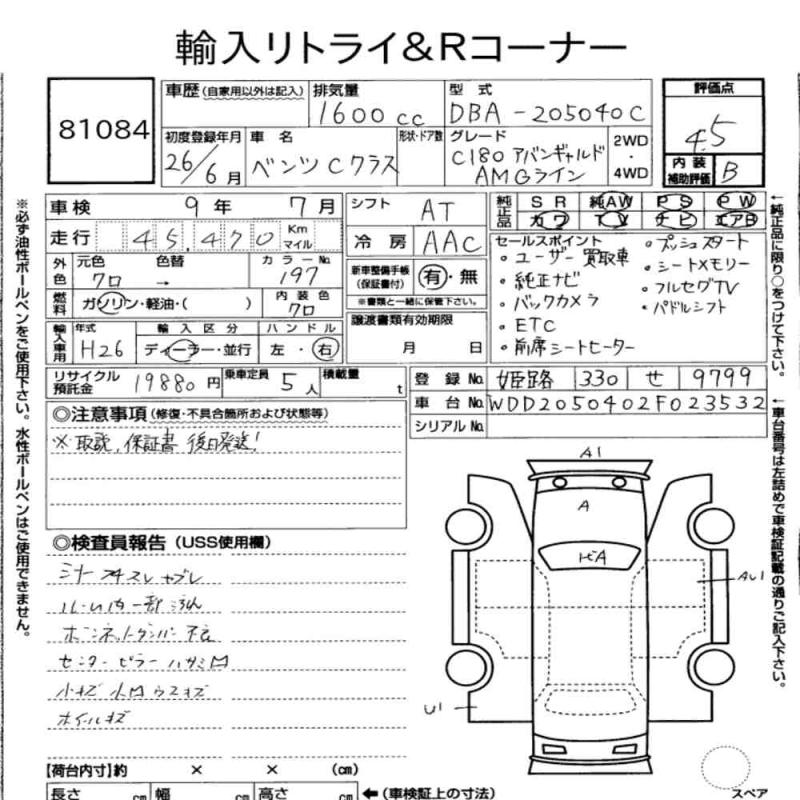 輸入リトライ&Rコーナー
81084
車歴(自家用以外は記入) 排気量 1600cc 型式 DBA-205040C
評価点 4.5
初度登録年月 26/6月 車名 ベンツCクラス 形状・ドア数 グレード C180 アバンギャルド AMGライン 2WD・4WD
内装補助評価 B
車検 9年 7月
走行 45,470 Km マイル
シフト AT
冷房 AAC
純正品 SR 純AW PS PW
カワ TV ナビ エアB
外色 元色 クロ 色替 → カラーNo. 197
燃料 ガソリン・軽油・( ) 内装色 クロ
輸入車用 年式 H26 輸入区分 ディーラー・並行 ハンドル 左・右
新車整備手帳(保証書付) 有・無
※書類と一緒に保管下さい。
譲渡書類有効期限
月 日
セールスポイント
・ユーザー買取車
・純正ナビ
・バックカメラ
・ETC
・前席シートヒーター
・プッシュスタート
・シートメモリー
・フルセグTV
・パドルシフト
リサイクル預託金 19880円 乗車定員 5人 積載量 t
登録No. 姫路 330 せ 9799
車台No. WDD2050402F023532
シリアルNo.
◎注意事項(修復・不具合箇所および状態等)
※取説,保証書 後日発送!
◎検査員報告(USS使用欄)
ルーム内一部汚れ
センターピラー
ホイールキズ
A1
A
U1
【荷台内寸】約 × × (cm)
長さ cm 幅 cm 高さ cm ←(車検証上の寸法)
スペア
※必ず油性ボールペンをご使用下さい。水性ボールペンはご使用できません。
←純正品に限り○をつけて下さい。
←車台番号は左詰めで車検証記載の通りご記入下さい。